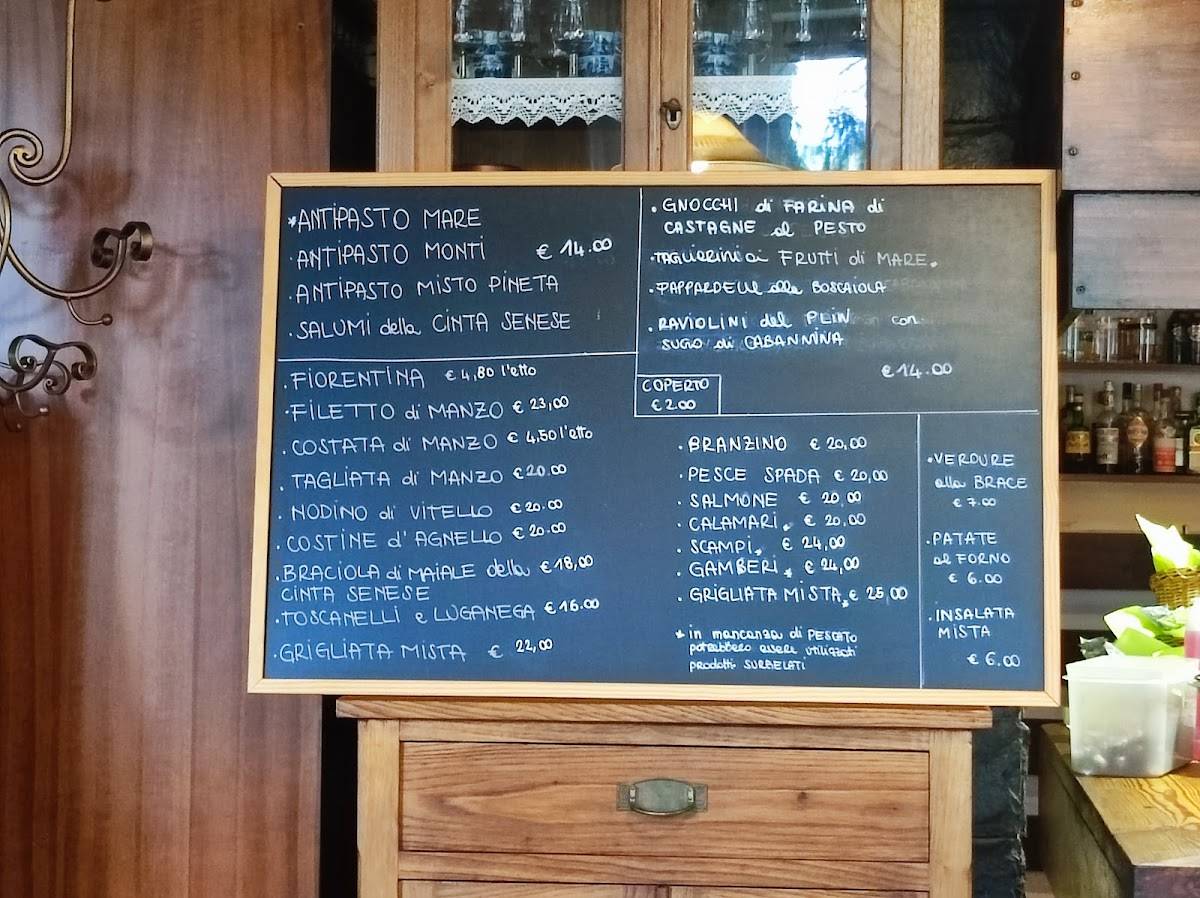 *ANTIPASTO MARE
·ANTIPASTO MONTI € 14.00
·ANTIPASTO MISTO PINETA
·SALUMI della CINTA SENESE
·GNOCCHI di FARINA di
CASTAGNE al PESTO
·TAGLIERINI ai FRUTTI di MARE.
·PAPPARDELLE alla BOSCAIOLA
·RAVIOLINI del PLIN con
SUGO di CABANNINA
€ 14.00
COPERTO
€ 2.00
·FIORENTINA € 4,80 l'etto
·FILETTO di MANZO € 23,00
·COSTATA di MANZO € 4,50 l'etto
·TAGLIATA di MANZO € 20.00
·NODINO di VITELLO € 20.00
·COSTINE d'AGNELLO € 20.00
·BRACIOLA di MAIALE della € 18,00
CINTA SENESE
·TOSCANELLI e LUGANEGA € 16.00
·GRIGLIATA MISTA € 22,00
·BRANZINO € 20,00
·PESCE SPADA € 20,00
·SALMONE € 20,00
·CALAMARI* € 20,00
·SCAMPI* € 24,00
·GAMBERI* € 24,00
·GRIGLIATA MISTA* € 25,00
* in mancanza di PESCATO
potrebbero essere utilizzati
prodotti SURGELATI
·VERDURE
alla BRACE
€ 7.00
·PATATE
al FORNO
€ 6.00
·INSALATA
MISTA
€ 6.00